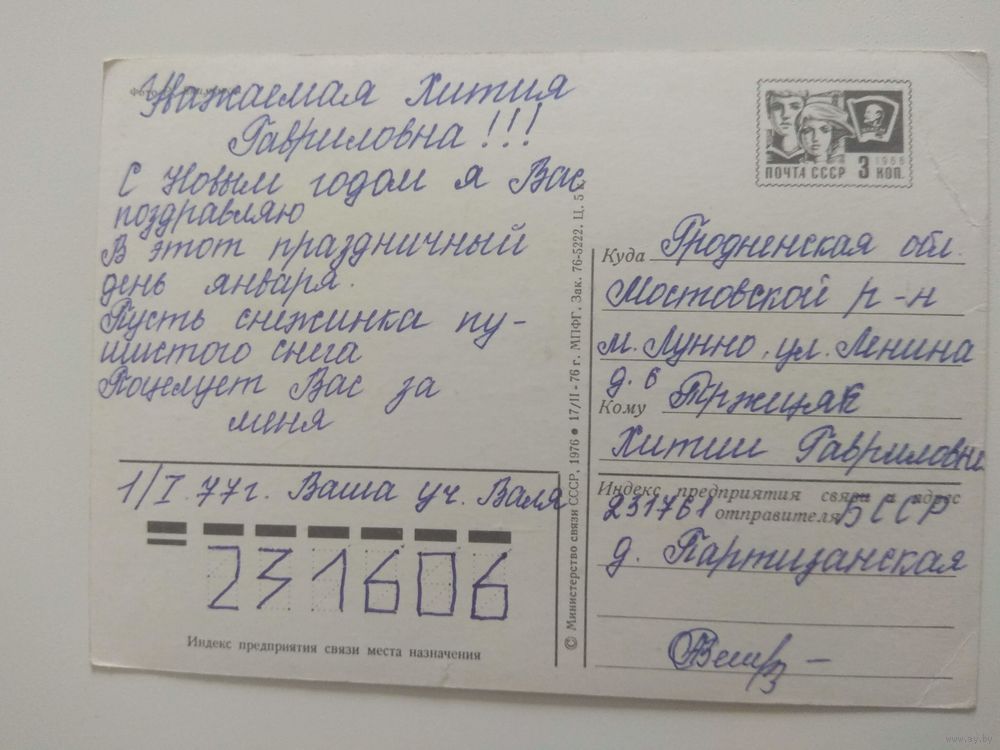 Уважаемая Хития
Гавриловна!!!
С Новым годом я Вас
поздравляю
В этот праздничный
день января.
Пусть снежинка пу-
шистого снега
Поцелует Вас за
меня
1/I 77г. Ваша уч. Валя
231606
Индекс предприятия связи места назначения
© Министерство связи СССР, 1976 ● 17/II-76 г. МПФГ. Зак. 76-5222. Ц. 5 к.
1966
ПОЧТА СССР 3 КОП.
Куда Гродненская обл.
Мостовской р-н
м. Лунно, ул. Ленина
д. 6
Кому Тржецяк
Хитии Гавриловне
Индекс предприятия связи и адрес
отправителя
231761 БССР
д. Партизанская
www.ay.by